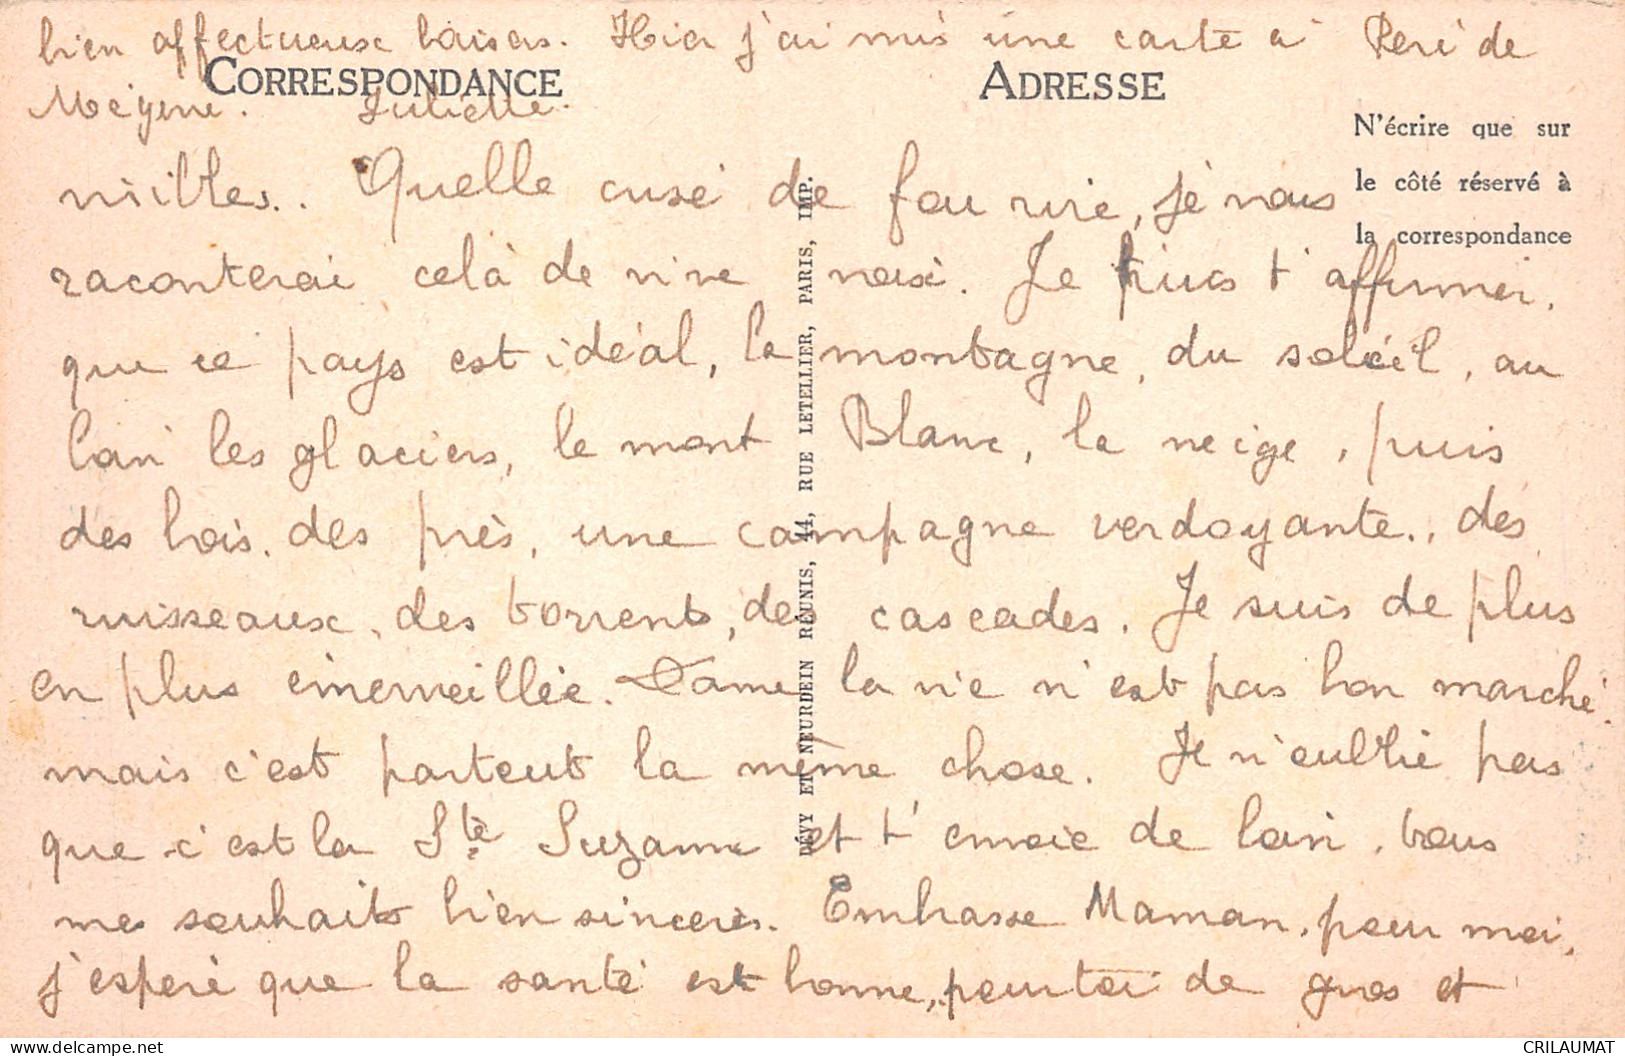 bien affectueux baisers. Hier j'ai mis une carte à Père de
CORRESPONDANCE
ADRESSE
Juliette.
N'écrire que sur
le côté réservé à
la correspondance
visites.. Quelle crise de fou rire, je vous
raconterai celà de vive voix. Je puis t'affirmer,
que ce pays est idéal, la montagne, du soleil, au
loin les glaciers, le mont Blanc, la neige, puis
des bois, des près, une campagne verdoyante., des
ruisseaux, des torrents, des cascades. Je suis de plus
en plus émerveillée. Dame la vie n'est pas bon marché,
mais c'est partout la même chose. Je n'oublie pas
que c'est la Ste Suzanne et t'envoie de loin, tous
mes souhaits bien sincères. Embrasse Maman, pour moi,
j'espère que la santé est bonne, pour toi de gros et
LÉVY ET NEURDEIN RÉUNIS, 44, RUE LETELLIER, PARIS, IMP.
delcampe.net
CRILAUMAT